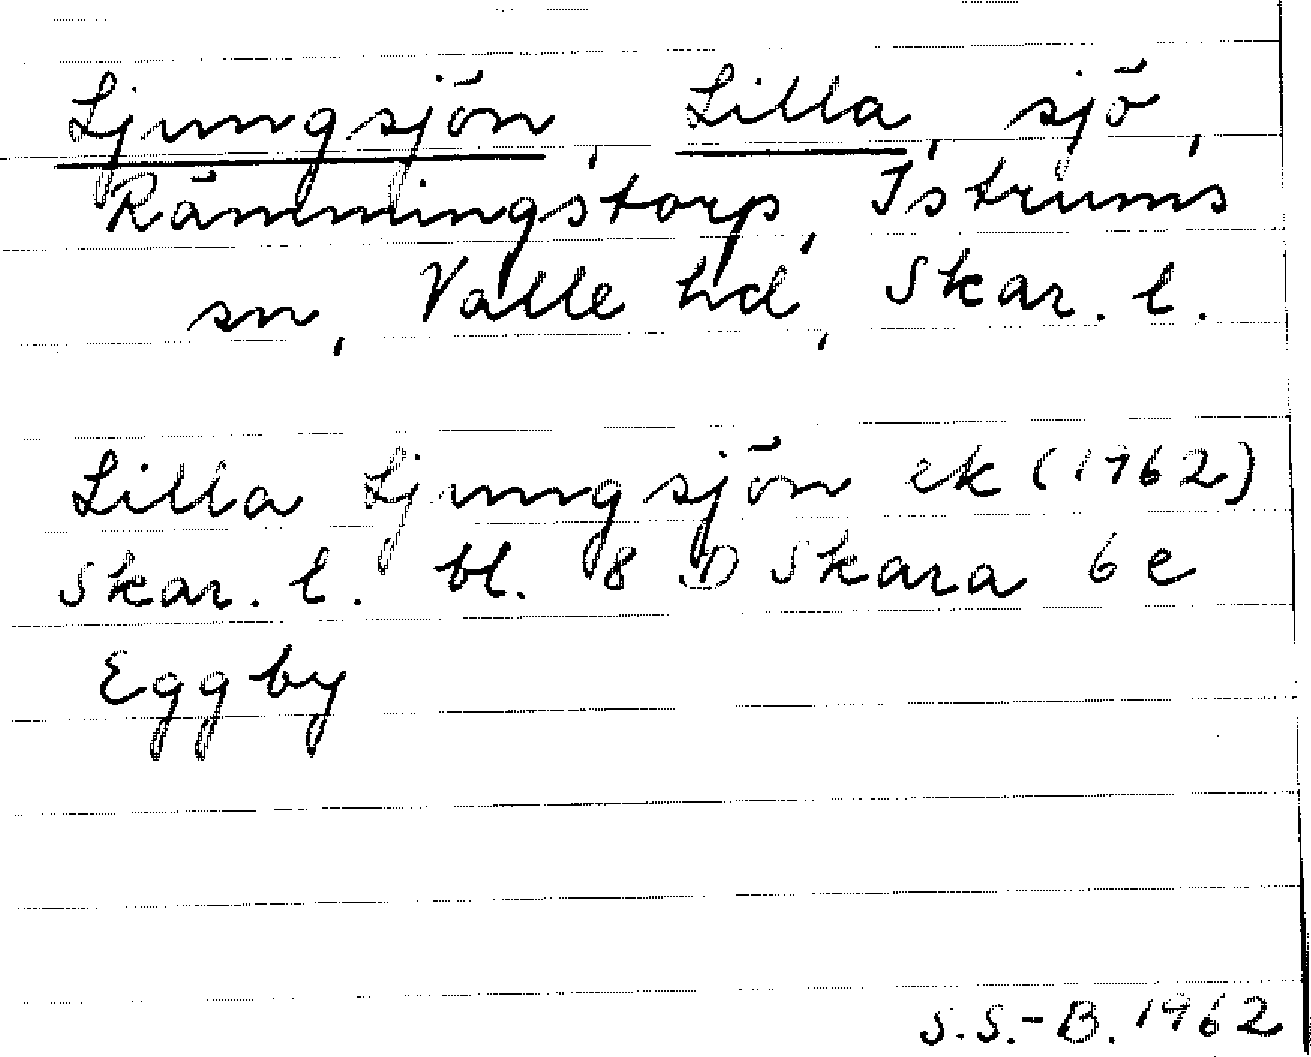 Ljungsjön, Lilla, sjö,
Rämmingstorp, Istrums
sn, Valle hd, Skar. l.
Lilla Ljungsjön ek (1962)
Skar. l. bl. 8 D Skara 6 e
Eggby
S.S.-B. 1962